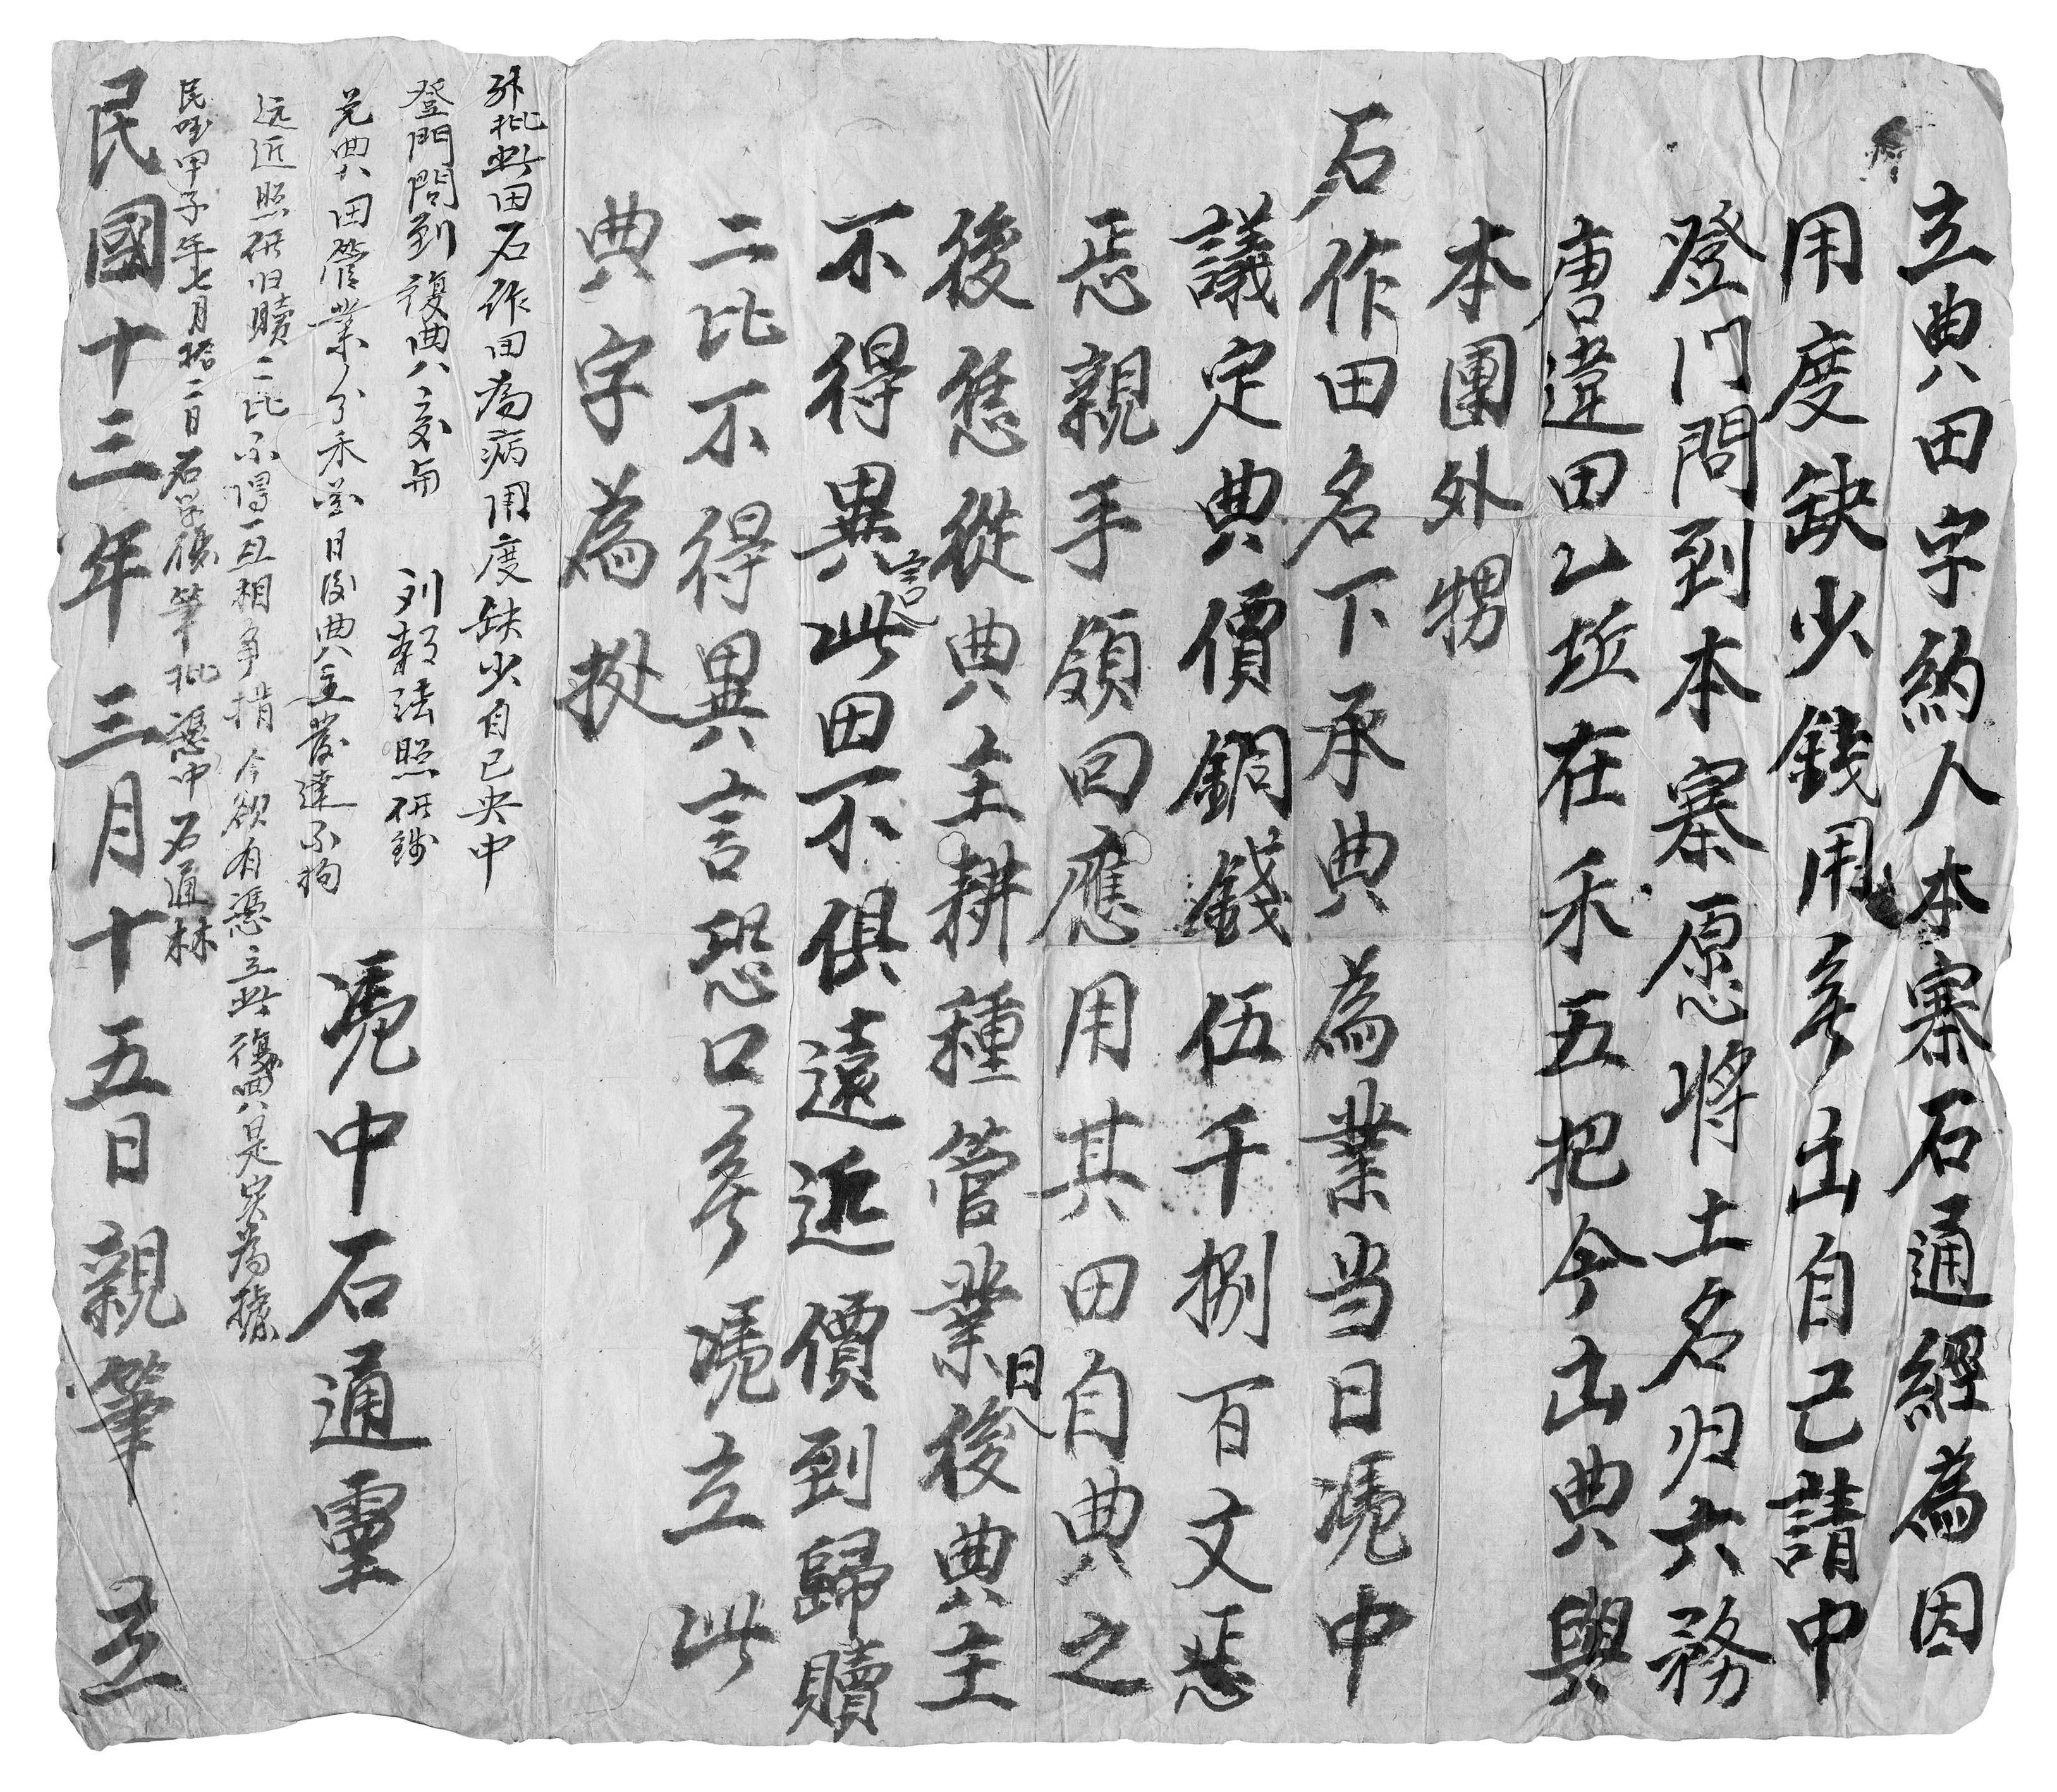 立典田字約人本寨石通經為因
用度缺少錢用無出自己請中
登门問到本寨愿将土名归六務
唐違田乙坵在禾五把今出典與
本團外甥
石作田名下承典為業当日凴中
議定典價銅錢伍千捌百文
親手領回應用其田自典之
後恁從典主耕種管業日後典主
不得異言此田不俱遠近價到歸贖
二比不得異言恐口無凴立此
典字為㨿
外批此田石作田為病用度缺少自己央中
登門問到復典八交与 照研錢
兑典田管業分禾当日後典主發達不拘
远近照研归贖二比不得互相争揹今欲有憑立此復典是实為據
民國甲子年七月拾二日石学後筆批憑中石通林
凴中石通靈
民國十三年三月十五日親筆 立